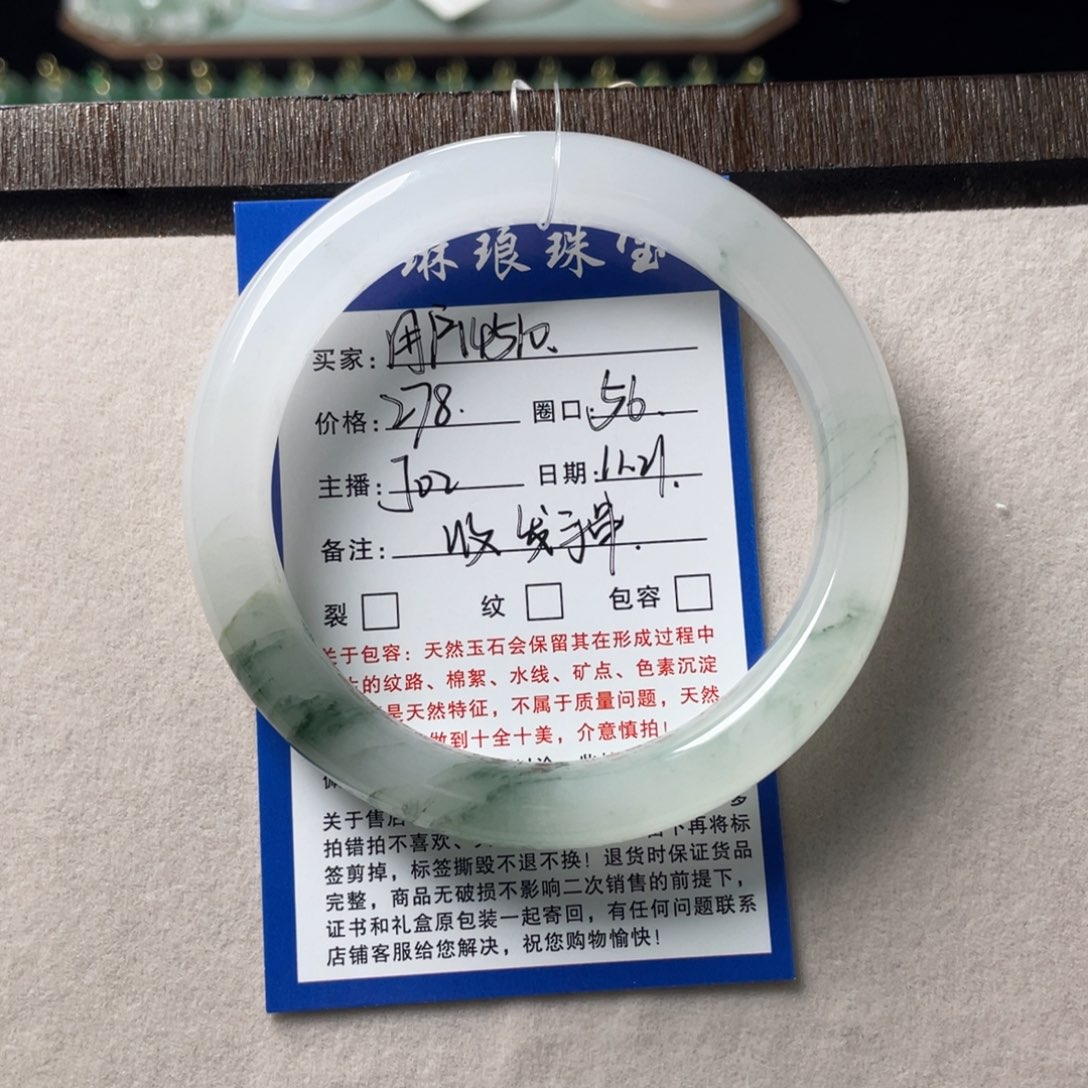 琳琅珠宝
买家: 用户14510.
价格: 278. 圈口: 56.
主播: J02 日期: 11.21.
备注:
裂 纹 包容
关于包容: 天然玉石会保留其在形成过程中
的纹路、棉絮、水线、矿点、色素沉淀
是天然特征, 不属于质量问题, 天然
做到十全十美, 介意慎拍!
关于售后
拍错拍不喜欢、 下再将标
签剪掉, 标签撕毁不退不换! 退货时保证货品
完整, 商品无破损不影响二次销售的前提下,
证书和礼盒原包装一起寄回, 有任何问题联系
店铺客服给您解决, 祝您购物愉快!